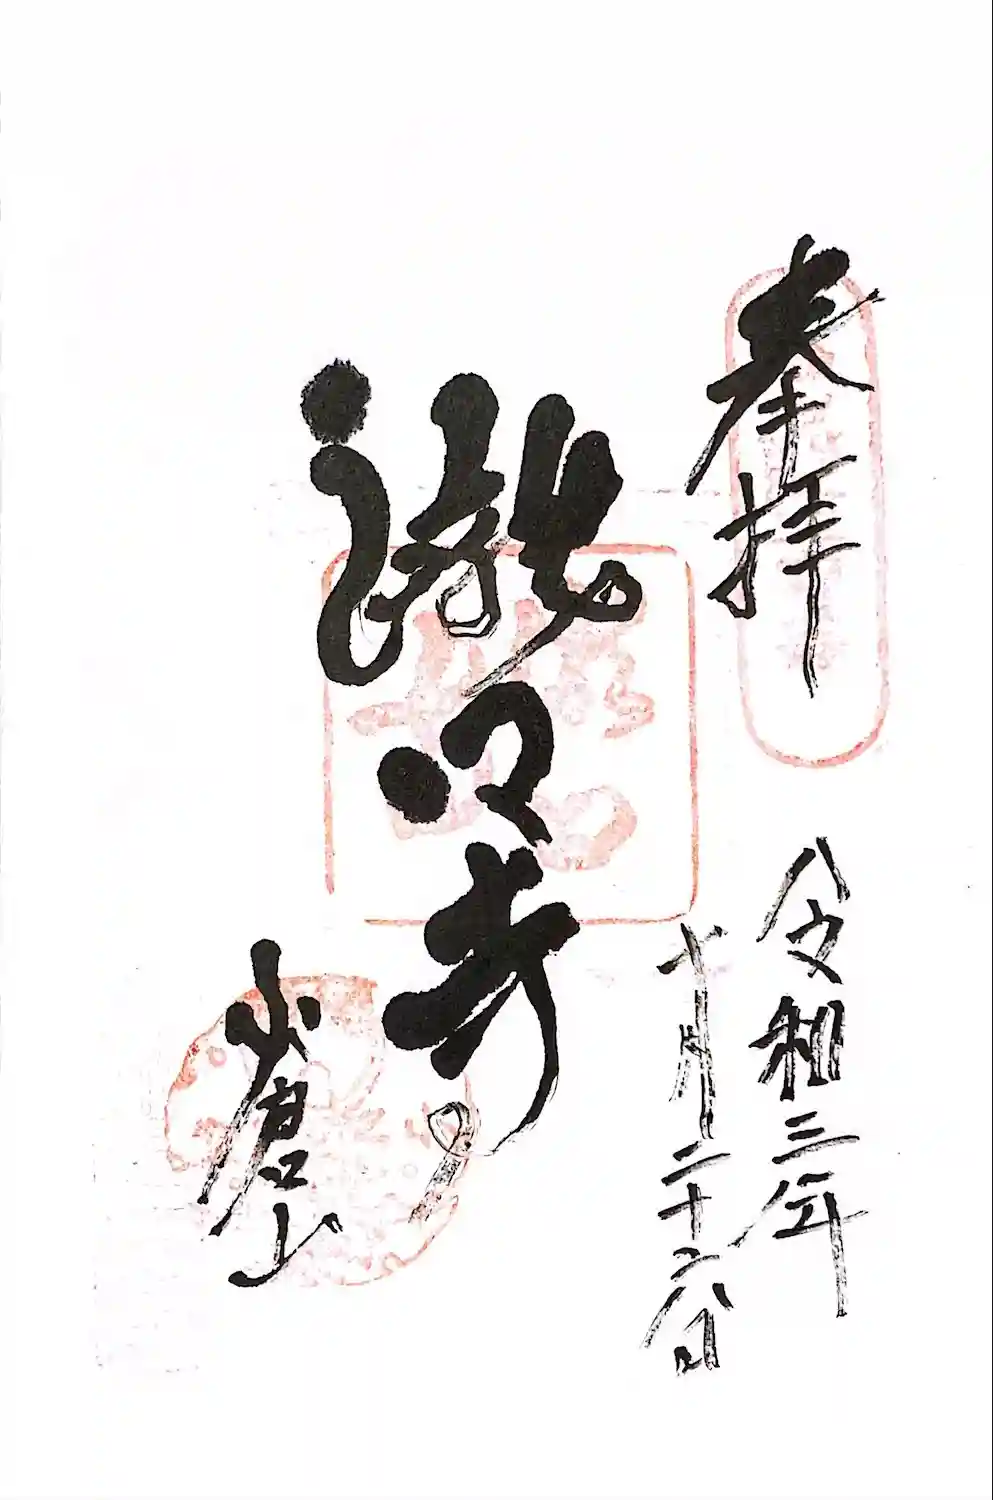 奉拝
令和三年
十月二十六日
瀧口寺
小倉山